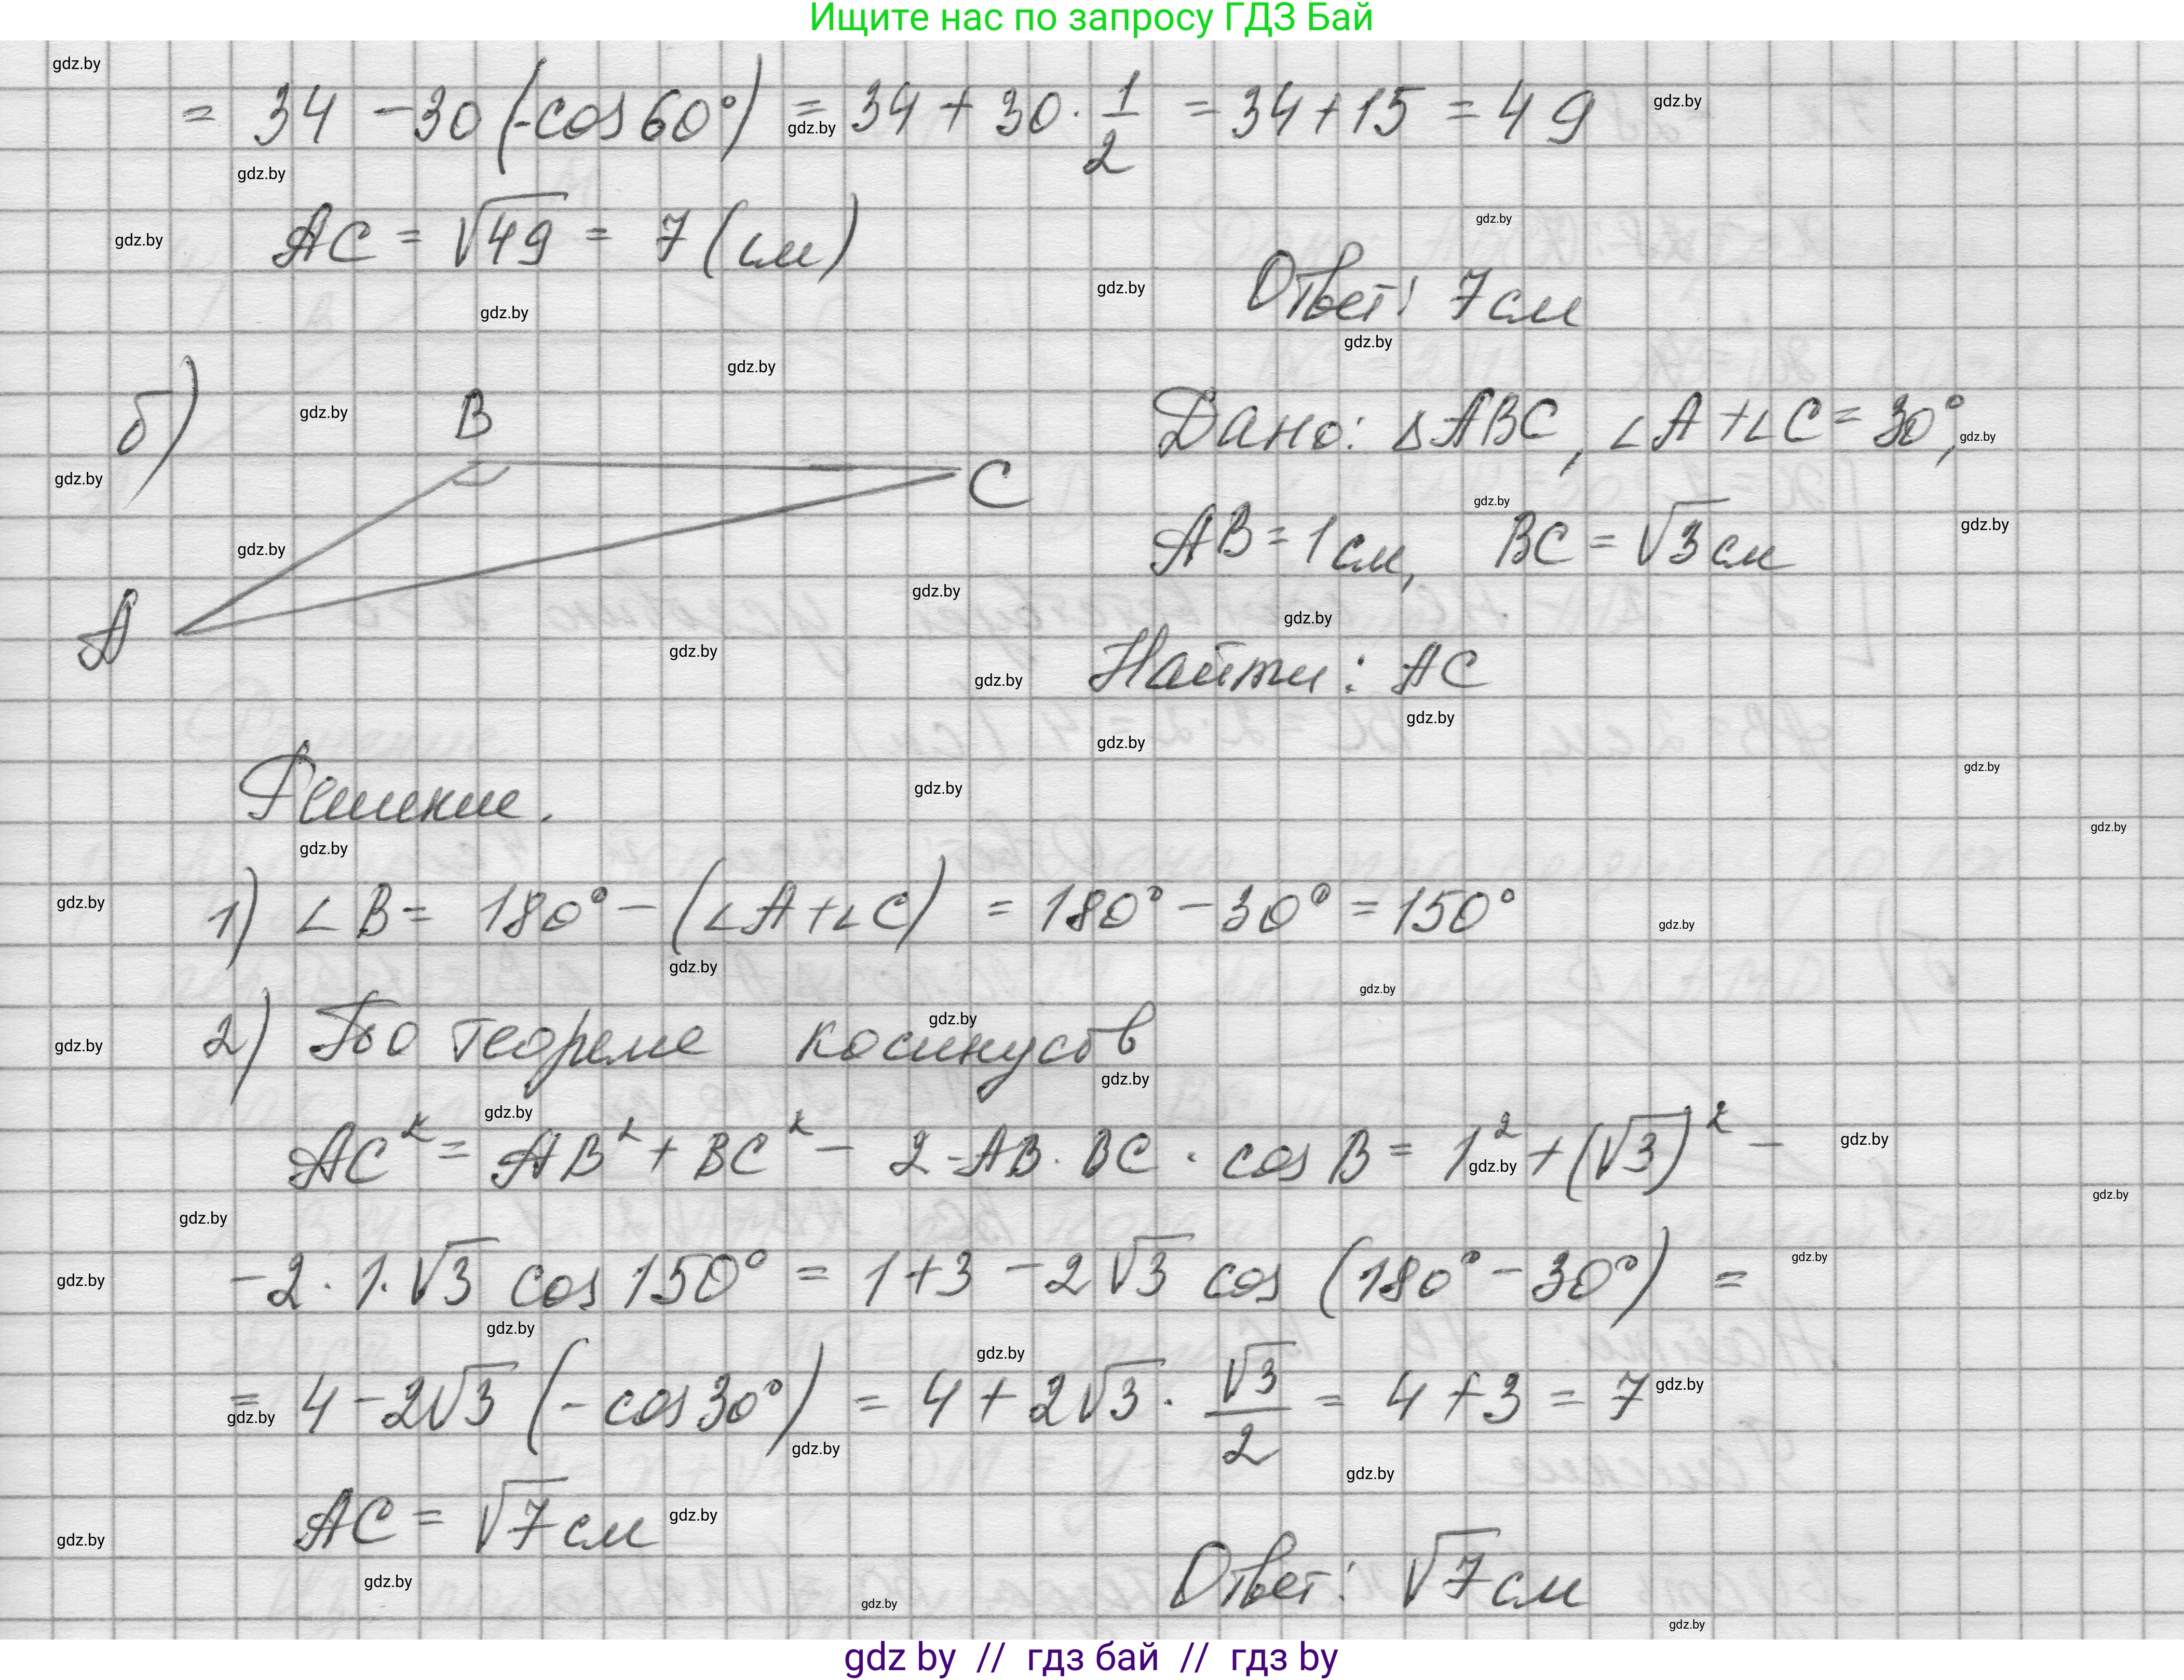 Ищите нас по запросу ГДЗ Бай
= 34 - 30 (-cos 60°) = 34 + 30 · 1/2 = 34 + 15 = 49
AC = √49 = 7 (см)
Ответ: 7 см
б)
B
C
A
Дано: ΔABC, ∠A + ∠C = 30°,
AB = 1 см, BC = √3 см
Найти: AC
Решение.
1) ∠B = 180° - (∠A + ∠C) = 180° - 30° = 150°
2) По теореме косинусов
AC² = AB² + BC² - 2 · AB · BC · cos B = 1² + (√3)² -
- 2 · 1 · √3 cos 150° = 1 + 3 - 2√3 cos (180° - 30°) =
= 4 - 2√3 (- cos 30°) = 4 + 2√3 · √3/2 = 4 + 3 = 7
AC = √7 см
Ответ: √7 см
gdz by // гдз бай // гдз by